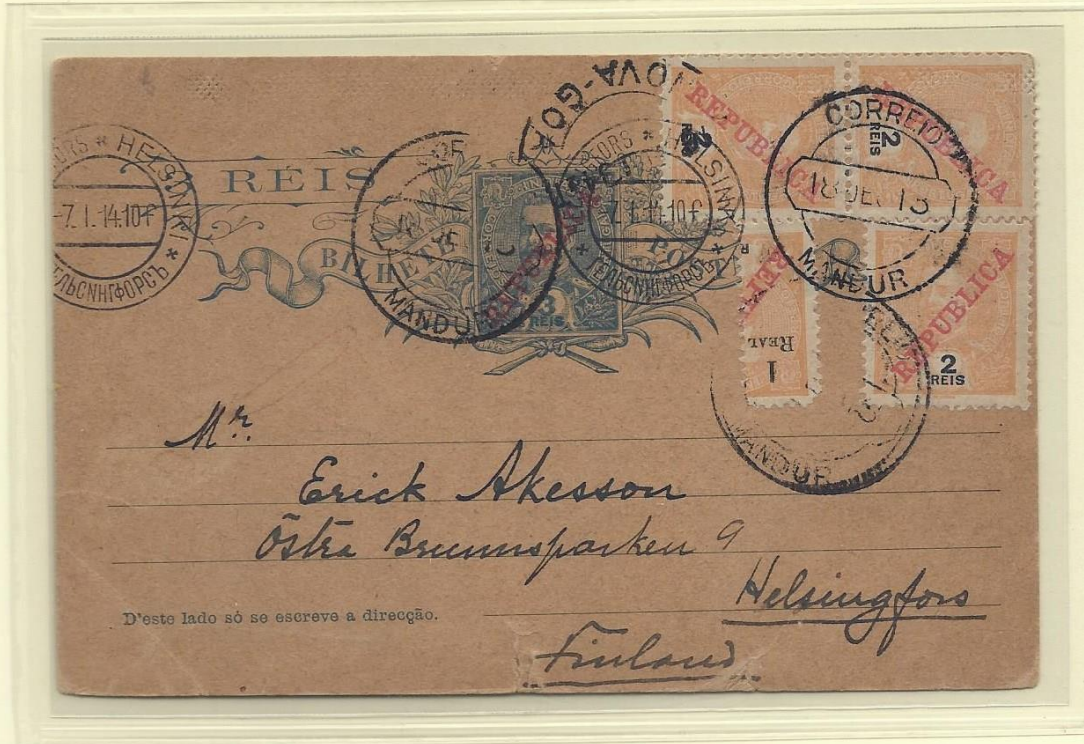 HELSINKI
-7.I.14.10 f
ГЕЛЬСИНГФОРСЪ
REIS
BILHETE
MANDUR
3
REIS
NOVA-GOA
HELSINKI
7.I.14.10 f
ГЕЛЬСИНГФОРСЪ
REPUBLICA
2
REPUBLICA
2
REIS
CORREIO
18 DEZ 13
MANDUR
REAL
1
REPUBLICA
2
REIS
MANDUR
Mr.
Erick Akesson
Östra Brunnsparken 9
Helsingfors
Finland
D'este lado só se escreve a direcção.